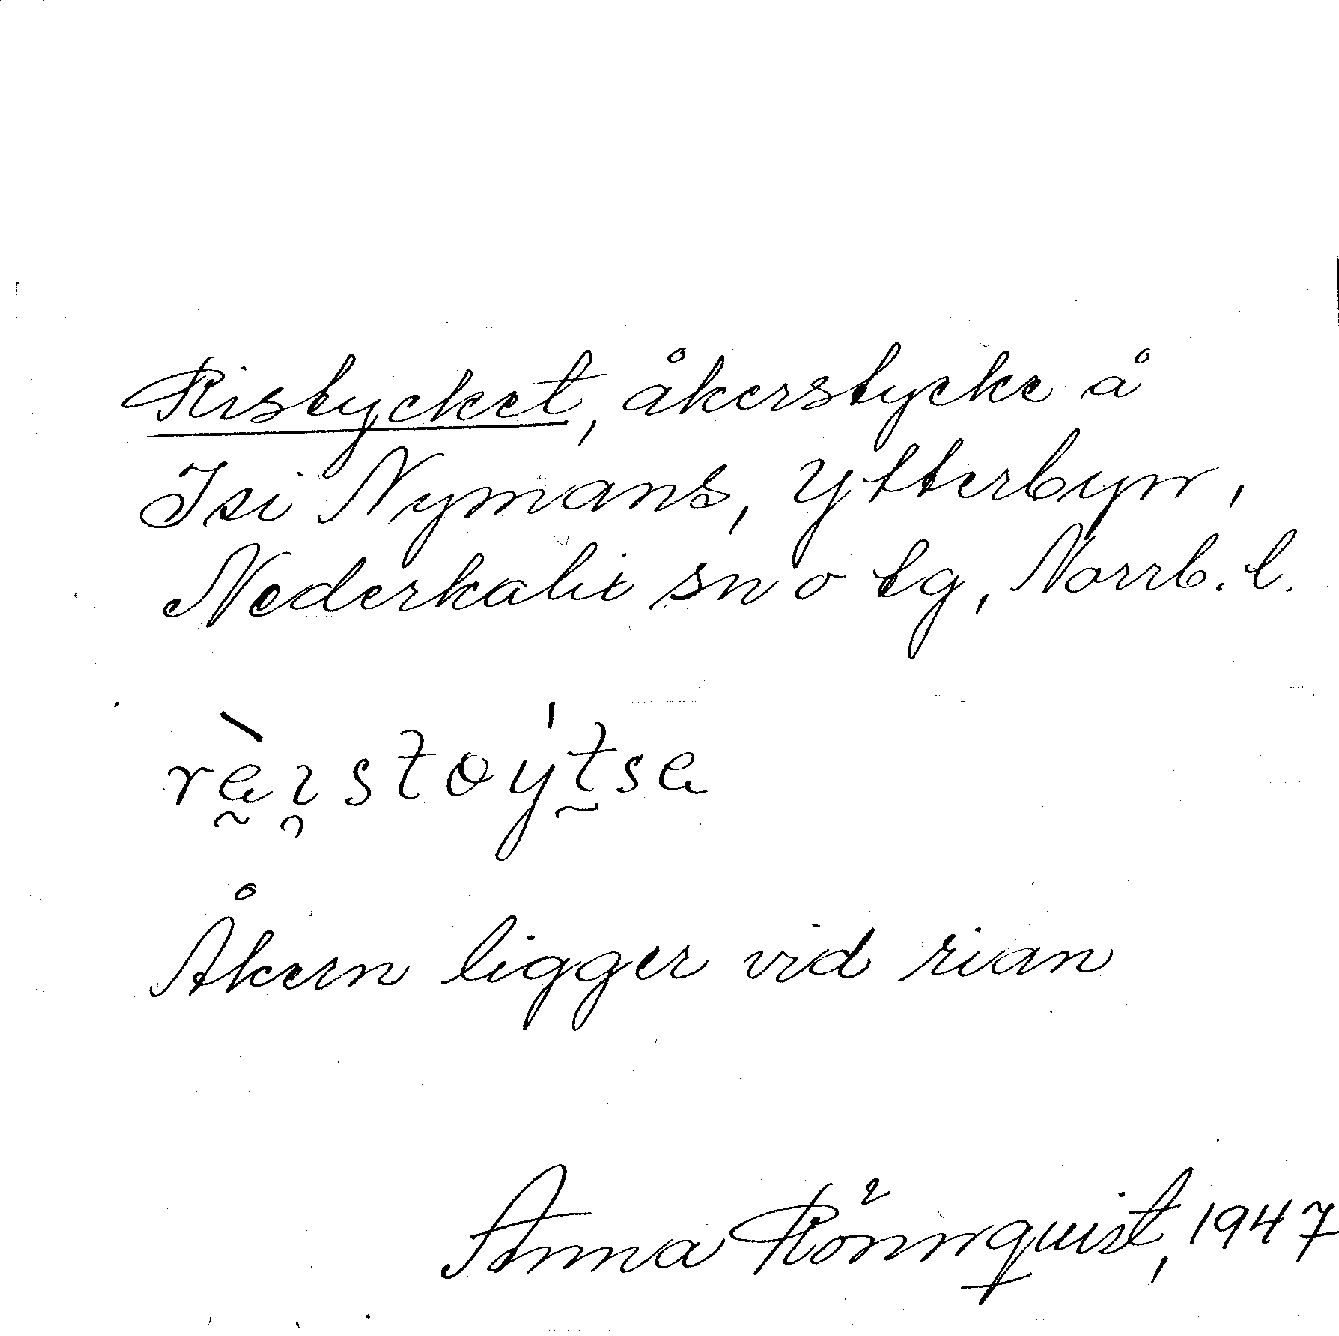 Ristycket, åkerstycke å
Isi Nymans, Ytterbyn,
Nederkalix sn o tg, Norrb. l.
Åkern ligger vid rian
Anna Rönnquist, 1947